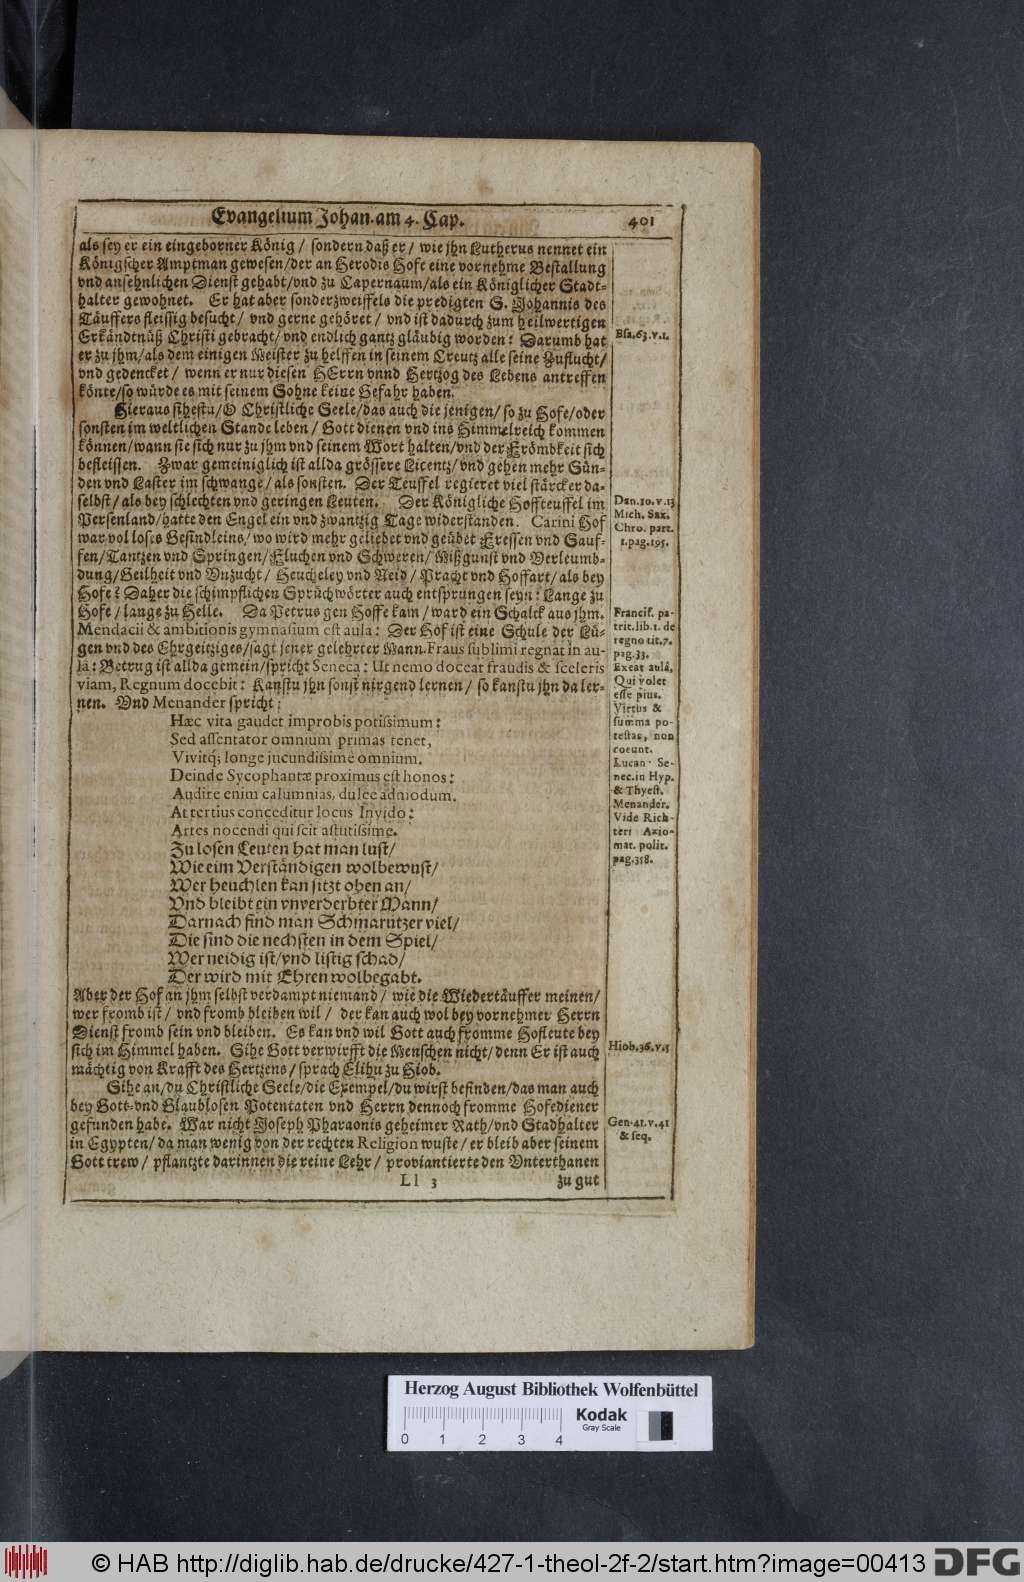 Evangelium Johan. am 4. Cap.
401
als sey er ein eingeborner König / sondern daß er / wie jhn Lutherus nennet ein
Königscher Amptman gewesen / der an Herodis Hofe eine vornehme Bestallung
vnd ansehnlichen Dienst gehabt / vnd zu Capernaum / als ein Königlicher Stadt=
halter gewohnet. Er hat aber sonder zweiffels die predigten S. Johannis des
Täuffers fleissig besucht / vnd gerne gehöret / vnd ist dadurch zum heilwertigen
Erkändtnüß Christi gebracht / vnd endlich gantz gläubig worden: Darumb hat
er zu jhm / als dem einigen Meister zu helffen in seinem Creutz alle seine Zuflucht /
vnd gedencket / wenn er nur diesen HErrn vnnd Hertzog des Lebens antreffen
könte / so würde es mit seinem Sohne keine Gefahr haben.
Hieraus sihestu / O Christliche Seele / das auch die jenigen / so zu Hofe / oder
sonsten im weltlichen Stande leben / Gott dienen vnd ins Himmelreich kommen
können / wann sie sich nur zu jhm vnd seinem Wort halten / vnd der Frömbkeit sich
befleissen. Zwar gemeiniglich ist allda grössere Licentz / vnd gehen mehr Sün=
den vnd Laster im schwange / als sonsten. Der Teuffel regieret viel stärcker da=
selbst / als bey schlechten vnd geringen Leuten. Der Königliche Hoffteuffel im
Persenland / hatte den Engel ein vnd zwantzig Tage widerstanden. Carini Hof
war vol loses Gesindleins / wo wird mehr geliebet vnd geübet Fressen vnd Sauf=
fen / Tantzen vnd Springen / Fluchen vnd Schweren / Mißgunst vnd Verleumb=
dung / Geilheit vnd Vnzucht / Heucheley vnd Neid / Pracht vnd Hoffart / als bey
Hofe? Daher die schimpflichen Sprüchwörter auch entsprungen seyn: Lange zu
Hofe / lange zu Helle. Da Petrus gen Hoffe kam / ward ein Schalck aus jhm.
Mendacii & ambitionis gymnasium est aula: Der Hof ist eine Schule der Lü=
gen vnd des Ehrgeitziges / sagt jener gelehrter Mann. Fraus sublimi regnat in au-
lâ: Betrug ist allda gemein / spricht Seneca: Ut nemo doceat fraudis & sceleris
viam, Regnum docebit: Kanstu jhn sonst nirgend lernen / so kanstu jhn da ler=
nen. Vnd Menander spricht:
Hæc vita gaudet improbis potissimum:
Sed assentator omnium primas tenet,
Vivitq; longe jucundissime omnium.
Deinde Sycophantæ proximus est honos:
Audire enim calumnias, dulce admodum.
At tertius conceditur locus Invido:
Artes nocendi qui scit astutissime.
Zu losen Leuten hat man lust /
Wie eim Verständigen wolbewust /
Wer heuchlen kan sitzt oben an /
Vnd bleibt ein vnverderbter Mann /
Darnach find man Schmarutzer viel /
Die sind die nechsten in dem Spiel /
Wer neidig ist / vnd listig schad /
Der wird mit Ehren wolbegabt.
Aber der Hof an jhm selbst verdampt niemand / wie die Wiedertäuffer meinen /
wer fromb ist / vnd fromb bleiben wil / der kan auch wol bey vornehmer Herrn
Dienst fromb sein vnd bleiben. Es kan vnd wil Gott auch fromme Hofleute bey
sich im Himmel haben. Sihe Gott verwirfft die Menschen nicht / denn Er ist auch
mächtig von Krafft des Hertzens / sprach Elihu zu Hiob.
Sihe an / du Christliche Seele / die Exempel / du wirst befinden / das man auch
bey Gott- vnd Glaublosen Potentaten vnd Herrn dennoch fromme Hofediener
gefunden habe. War nicht Joseph Pharaonis geheimer Rath / vnd Stadhalter
in Egypten / da man wenig von der rechten Religion wuste / er bleib aber seinem
Gott trew / pflantzte darinnen die reine Lehr / proviantierte den Vnterthanen
Ll 3
zu gut
Esa. 63. v. 1.
Dan. 10. v. 13
Mich. Sax.
Chro. part.
1. pag. 195.
Francis. pa-
trit. lib. 1. de
regno tit. 7.
pag. 33.
Exeat aulâ,
Qui volet
esse pius.
Virtus &
summa po-
testas, non
coeunt.
Lucan. Se-
nec. in Hyp.
& Thyest.
Menander.
Vide Rich-
teri Axio-
mat. polit.
pag. 318.
Hiob. 36. v. 5
Gen. 41. v. 41
& seq.
Herzog August Bibliothek Wolfenbüttel
Kodak
Gray Scale
0 1 2 3 4
© HAB http://diglib.hab.de/drucke/427-1-theol-2f-2/start.htm?image=00413
DFG